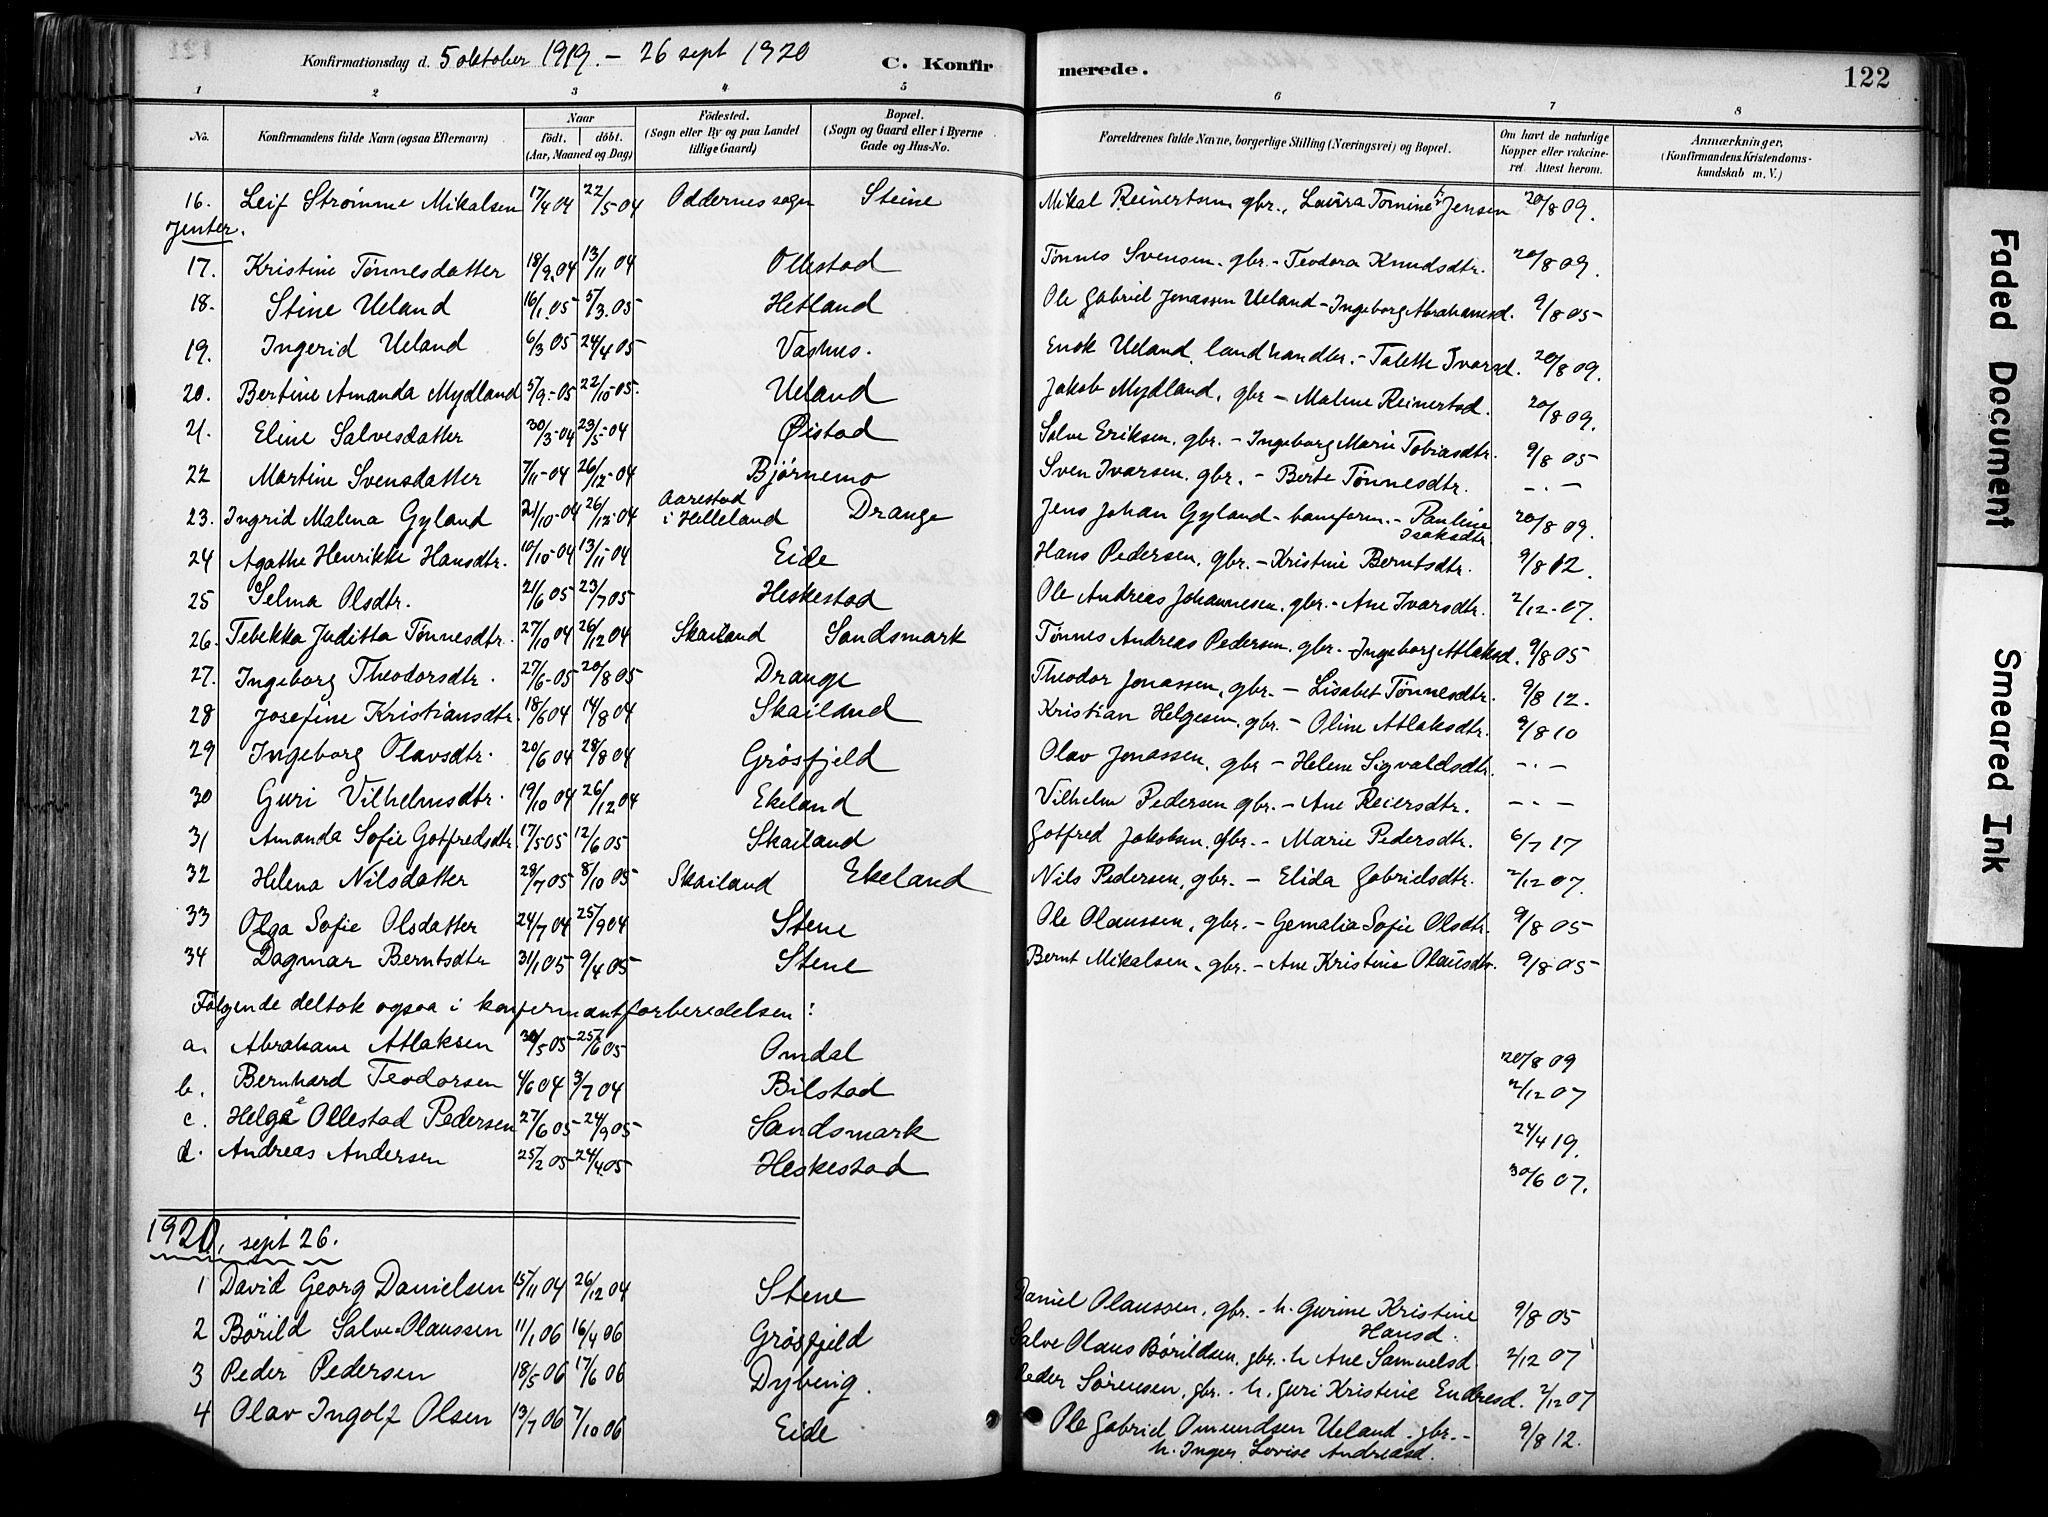 Konfirmationsdag d. 5 oktober 1919. – 26 sept 1920 C. Konfirmerede. 122
1 2 3 4 5 6 7 8
No. Konfirmandens fulde Navn (ogsaa Efternavn) Naar født. døbt. (Aar, Maaned og Dag) Fødested. (Sogn eller By og paa Landet tillige Gaard) Bopæl. (Sogn og Gaard eller i Byerne Gade og Hus-No. Forældrenes fulde Navne, borgerlige Stilling (Næringsvei) og Bopæl. Om havt de naturlige Kopper eller vakcineret. Attest herom. Anmærkninger. (Konfirmandens Kristendomskundskab m. V.)
16. Leif Strømme Mikalsen 17/4 04 22/5-04 Oddernes sogn Steine Mikal Reinertsen gbr., Laura Tomine Jensen 20/8 09.
Jenter.
17. Kristine Tønnesdatter 18/9.04 13/11 04 Ollestad Tønnes Svensen. gbr.- Teodora Knudsdtr. 20/8 09.
18. Stine Ueland 16/1.05 5/3.05 Hetland Ole Gabriel Jonassen Ueland – Ingeborg Abrahamsd. 9/8 05
19. Ingerid Ueland 6/3 05 24/4 05 Vashus. Enok Ueland. landhandler. – Talette Ivarsd. 20/8 09.
20. Bertine Amanda Mydland 5/9.-05 22/10-05. Ueland Jakob Mydland, gbr – Malene Reinertsd. 20/8 09.
21. Eline Salvesdatter 30/3-04 23/5-04 Øistad Salve Eriksen, gbr. – Ingeborg Marie Tobiasdtr. 9/8 05
22 Martine Svensdatter 7/11-04 26/12-04 Bjørnemo Sven Ivarsen. gbr. – Berte Tønnesdtr. – . –
23. Ingrid Malena Gyland 21/10-04 26/12-04 Aarestad i Helleland Drange Jens Johan Gyland – baneform. – Pauline Isaksdtr. 20/8 09.
24 Agathe Henrikke Hansdtr. 10/10-04 13/11-04 Eide Hans Pedersen, gbr. – Kristine Berntsdtr. 9/8 12.
25 Selma Olsdtr. 21/6 05 23/7 05 Heskestad Ole Andreas Johannesen, gbr. – Ane Ivarsdtr. 2/12-07.
26. Tebekka Juditta Tønnesdtr. 27/10 04 26/12 04 Skailand Sandsmark Tønnes Andreas Pedersen, gbr. – Ingeborg Atlaksd. 9/8 05
27. Ingeborg Theodorsdtr. 27/6-05 20/8 05 Drange Theodor Jonassen, gbr. – Lisabet Tønnesdtr. 9/8 12.
28 Josefine Kristiansdtr. 18/6 04 14/8 04 Skailand Kristian Helgesen, gbr. – Oline Atlaksdtr. 9/8 10
29 Ingeborg Olavsdtr. 20/6 04 28/8 04 Grøsfjeld Olav Jonassen, gbr – Helene Sigvaldsdtr. – . –
30 Guri Vilhelmsdtr. 19/10 04 26/12 04 Ekeland Vilhelm Pedersen gbr. – Ane Reiersdtr. – . –
31 Amanda Sofie Gotfredsdtr. 17/5 05 12/6 05 Skailand Gotfred Jakobsen, gbr. – Marie Pedersdtr. 6/7 17
32 Helena Nilsdatter 28/7 05 8/10 05 Skailand Ekeland Nils Pedersen, gbr. – Elida Gabrielsdtr. 2/12 07.
33 Olga Sofie Olsdatter 24/7 04 25/9 04 Stene Ole Olaussen, gbr. – Gemalia Sofie Olsdtr. 9/8 05
34 Dagmar Berntsdtr 31/1 05 9/4 05 Stene Bernt Mikalsen, gbr. – Ane Kristine Olausdtr. 9/8 05
Følgende deltok ogsaa i konfirmantforberedelsen:
a. Abraham Atlaksen 30/5 05 25/6 05 Omdal 20/8 09
b. Bernhard Teodorsen 4/6 04 3/7 04 Bilstad 2/12 07
c. Helge Ollestad Pedersen 27/6 05 24/9 05 Sandsmark 24/4 19.
d. Andreas Andersen 25/2 05 24/4.05 Heskestad 30/6 07.
1920, sept 26.
1 David Georg Danielsen 15/11 04 26/12 04 Stene Daniel Olaussen, gbr. – h. Gurine Kristine Hansd. 9/8 05
2 Børild Salve Olaussen 11/1 06 16/4 06 Grøsfjeld Salve Olaus Børildsen, gbr. – h Ane Samuelsd 2/12 07
3 Peder Pedersen 18/5 06 17/6 06 Dybing. Peder Sørensen, gbr. – h. Guri Kristine Endresd. 2/12 07
4 Olav Ingolf Olsen 13/7 06 7/10 06 Eide Ole Gabriel Omundsen Ueland. gbr. – h. Inger Lovise Andreasd. 9/8 12.
Faded Document
Smeared Ink